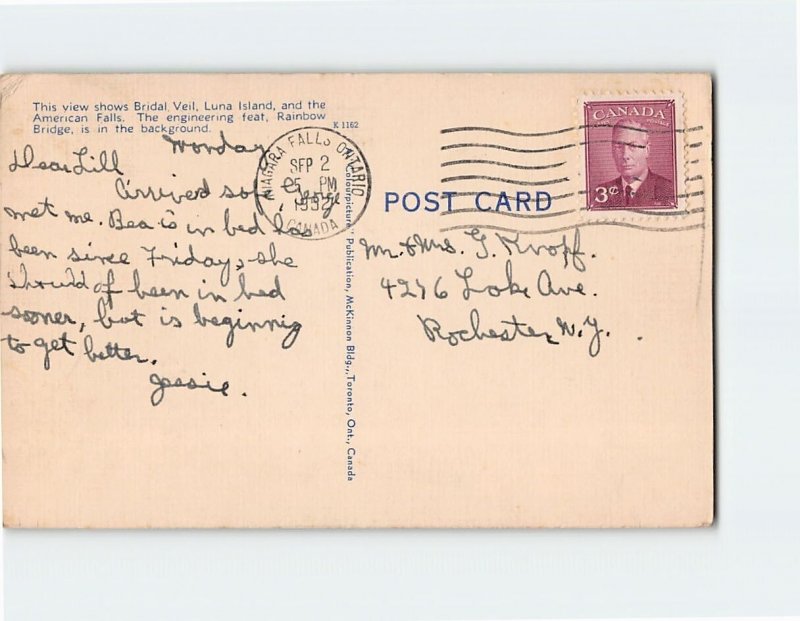 This view shows Bridal Veil, Luna Island, and the
American Falls. The engineering feat, Rainbow
Bridge, is in the background.
K 1162
Monday
Dear Lill
Arrived
met me. Bea is in bed has
been since Friday, she
should of been in bed
sooner, but is beginnig
to get better.
Jessie.
NIAGARA FALLS ONTARIO
SEP 2
PM
1952
CANADA
Colourpicture" Publication, McKinnon Bldg., Toronto, Ont., Canada
POST CARD
CANADA
3¢
Mr. & Mrs. G. Kropf.
4276 Lake Ave.
Rochester N.Y.